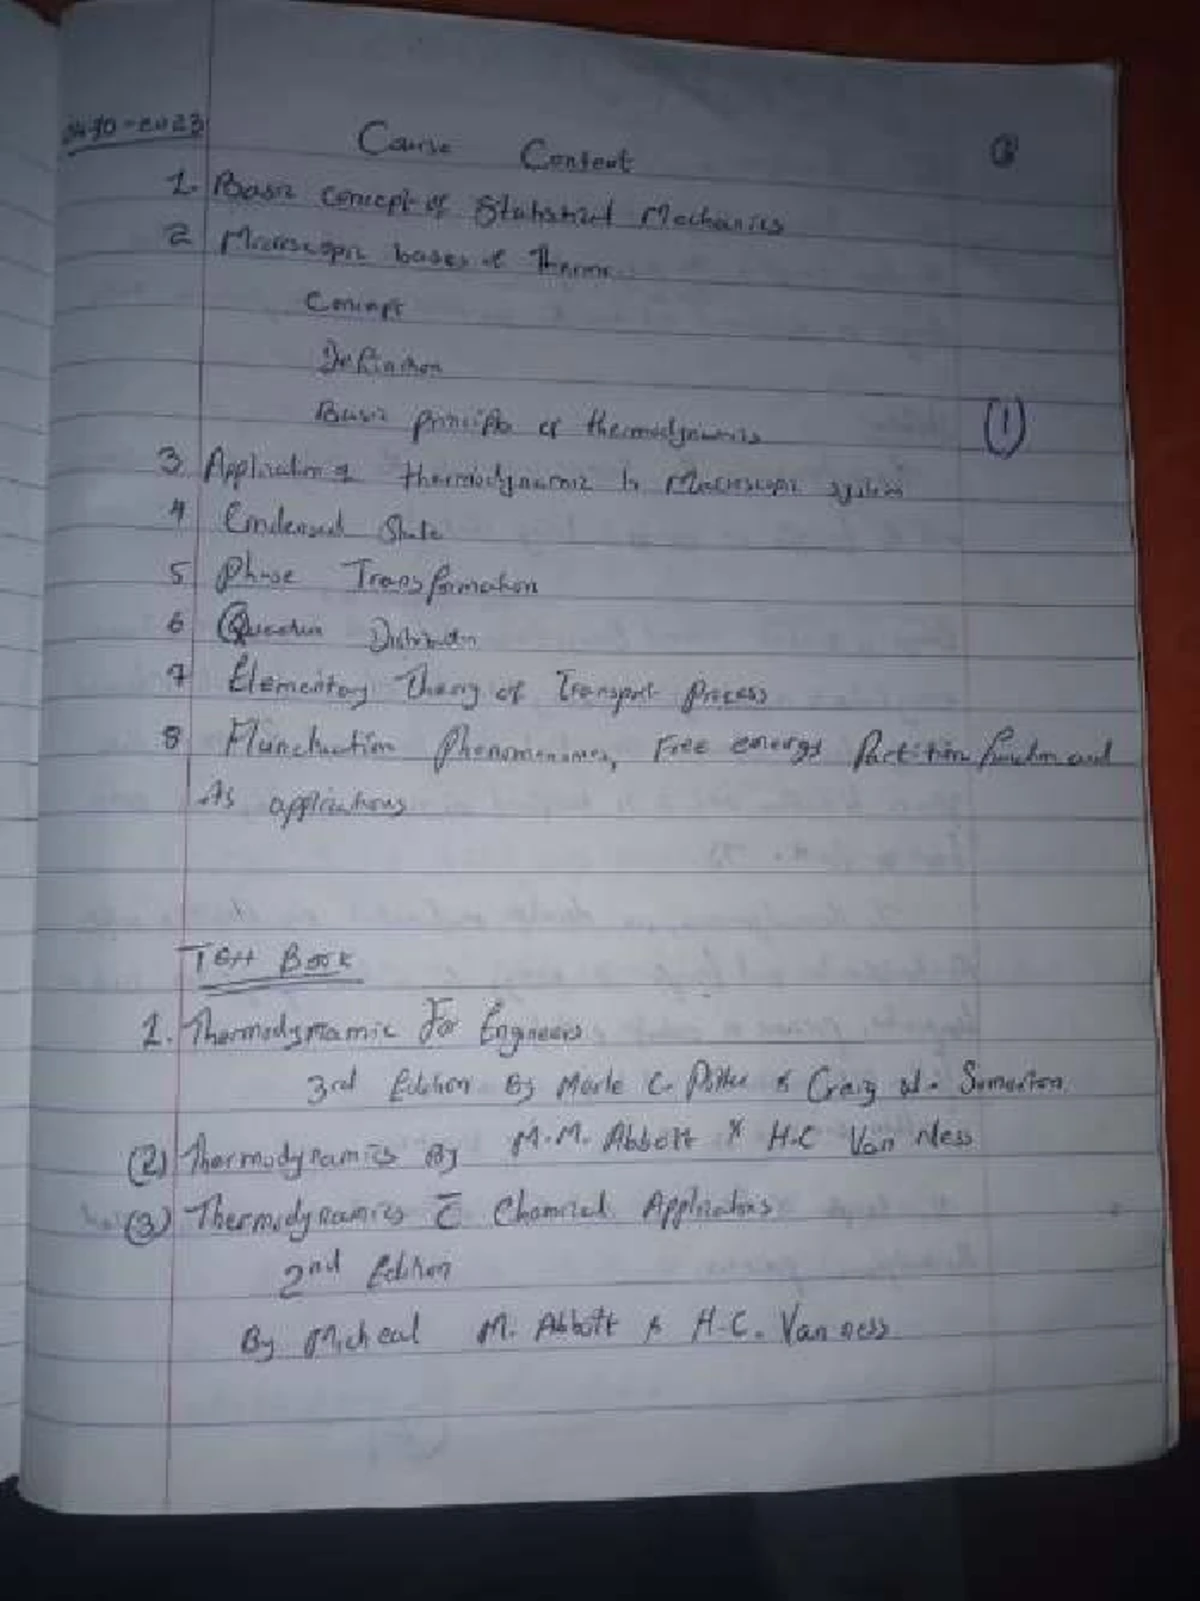 Course Content
1. Basic concept of Statistical Mechanics
2 Microscopic bases of Thermo
Concept
Definition
Basic principle of thermodynamics
(1)
3 Application of thermodynamic to Macroscopic system
4 Condensed State
5 Phase Transformation
6 Quantum Distribution
7 Elementary Theory of Transport Process
8 Phenomenones, Free energy Partition function and
its applications
Text Book
1. Thermodynamic For Engineers
3rd Edition By Merle C. Potter & Craig W. Somerton
(2) Thermodynamics By M.M. Abbott & H.C Van Ness
(3) Thermodynamics c̄ Chemical Applications
2nd Edition
By Micheal M. Abbott & H.C. Van ness